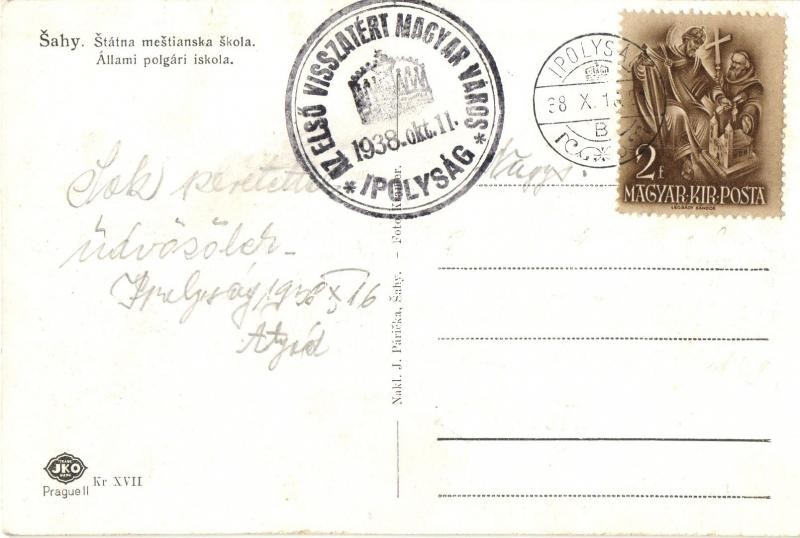 Šahy. Štátna meštianska škola.
Állami polgári iskola.
AZ ELSŐ VISSZATÉRT MAGYAR VÁROS
1938. okt. 11.
* IPOLYSÁG *
IPOLYSÁG
38 X. 16
B
2f
MAGYAR·KIR·POSTA
LÉGRÁDY SÁNDOR
Sok
üdvözöler
Ipolyság 1938 X 16
Atyád
Nakl. J. Párička, Šahy. – Foto
TRADE
JKO
MARK
Prague II
Kr XVII